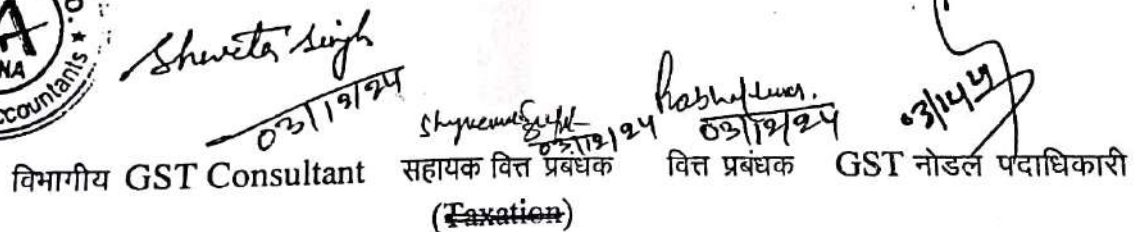 A
NA
ccountants ★
Shweta Singh
03/12/24
03/12/24
03/12/24
विभागीय GST Consultant सहायक वित्त प्रबंधक वित्त प्रबंधक GST नोडल पदाधिकारी
(Taxation)